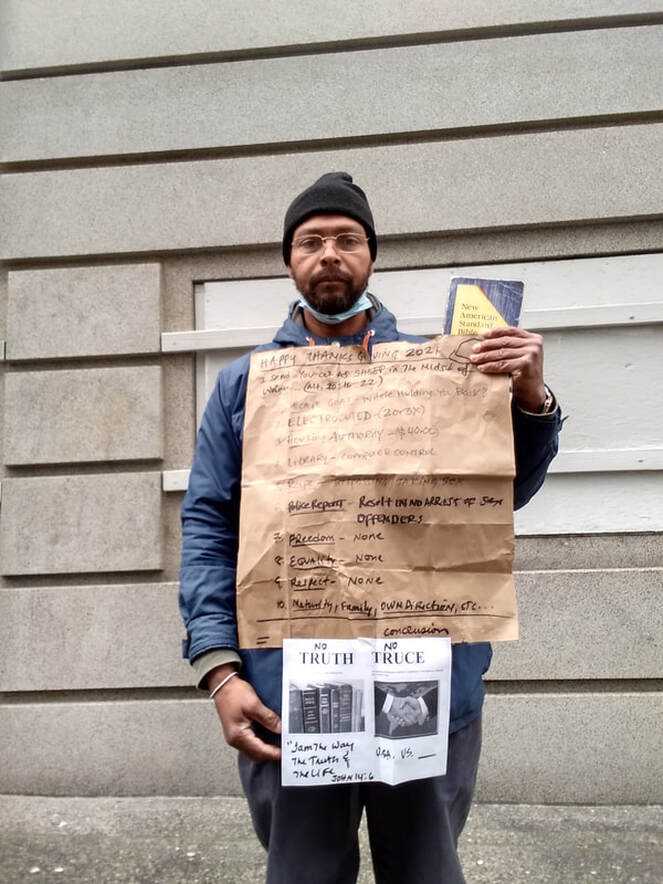 New
American
Standard
Bible
HAPPY THANKSGIVING 2021
I SEND YOU OUT AS SHEEP IN THE MIDST OF
10:16-22)
ELECTROCUTED - (2 or 3X)
Housing AUTHORITY - $40.00
LIBRARY - COMPUTER CONTROL
Rape -
Police Report - Result IN NO ARREST OF SEX
OFFENDERS
7. FReedom - NONE
8. EQUALITY - None
9. Respect - NONE
10. Maturity, Family, OWN DIRECTION, ETC...
conclusion
NO NO
TRUTH TRUCE
"I am The Way
The Truth &
The LIFE
JOHN 14:6
U.S.A. VS.